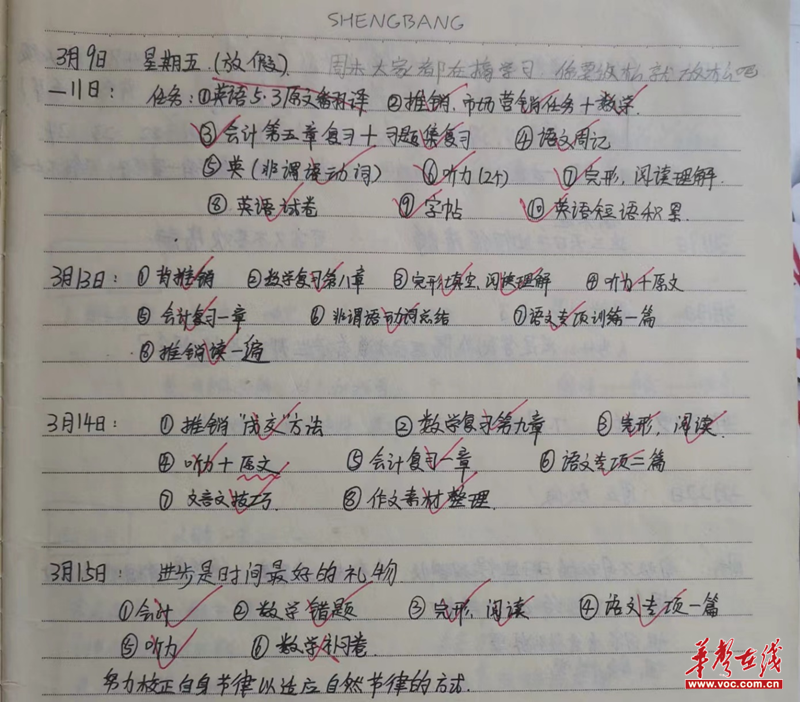 SHENGBANG
3月9日 星期五.(放假). 周末大家都在搞学习,你要放松就放松吧
—11日: 任务:①英语5·3原文翻译 ②推销,市场营销任务+数学.
③会计第五章复习+习题集复习 ④语文周记
⑤英(非谓语动词) ⑥听力(2个) ⑦完形,阅读理解.
⑧英语试卷 ⑨字帖 ⑩英语短语积累.
3月13日: ①背推销 ②数学复习第八章 ③完形填空,阅读理解 ④听力+原文
⑤会计复习一章 ⑥非谓语动词总结 ⑦语文专项训练一篇
⑧推销读一遍
3月14日: ①推销"成交"方法 ②数学复习第九章 ③完形,阅读.
④听力+原文 ⑤会计复习一章 ⑥语文专项二篇
⑦文言文技巧 ⑧作文素材整理.
3月15日: 进步是时间最好的礼物
①会计 ②数学错题 ③完形,阅读 ④语文专项一篇
⑤听力 ⑥数学补习卷.
努力校正自身节律以适应自然节律的方式.
华声在线
www.voc.com.cn